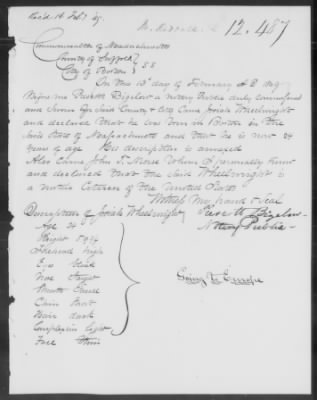 Rec'd 14 Feby 49.
12.487
Commonwealth of Massachusetts
County of Suffolk } SS
City of Boston
On the 13th day of February A D 1849
before me Perez W Bigelow a notary Public duly commissioned
and Sworn for said County & City came Josiah Wheelwright
and declared that he was born in Boston in the
said State of Massachusetts and that he is now 24
years of age His description is annexed
Also Came John F. Morse whom I personally know
and declared that the said Wheelwright is
a native Citizen of the United States
Witness my hand & Seal
Description of Josiah Wheelwright
Bigelow
Notary Public
Age 24
Height 5
Forehead high
Eyes black
Nose straight
Mouth
Chin
Hair dark
Complexion light
Face thin
Going to Europe